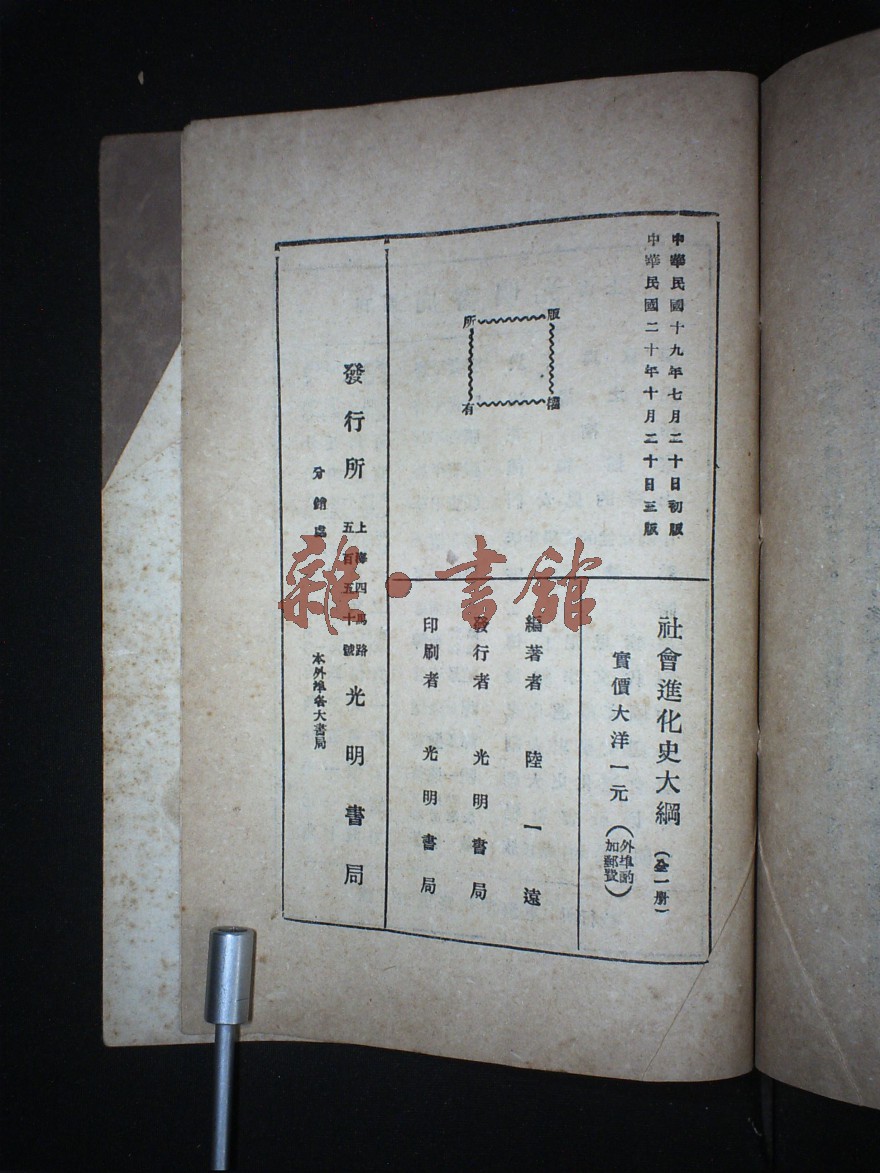 中華民國十九年七月二十日初版
中華民國二十年十月二十日三版
版權所有
社會進化史大綱（全一册）
實價大洋一元（外埠酌加郵費）
編著者 陸一遠
發行者 光明書局
印刷者 光明書局
發行所 上海四馬路五百五十號 光明書局
分銷處 本外埠各大書局
雜·書館